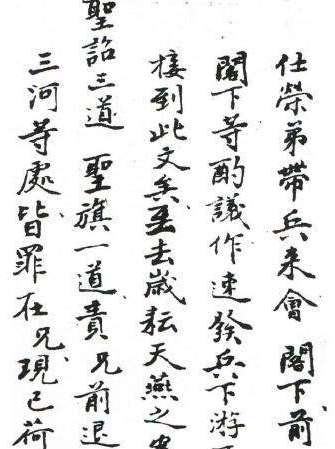 仕榮弟帶兵来會 閣下前
閣下等酌議作速發兵下游
接到此文矣至去歲耘天燕之
聖詔三道 聖旗一道責 兄前退
三河等處皆罪在兄現已荷